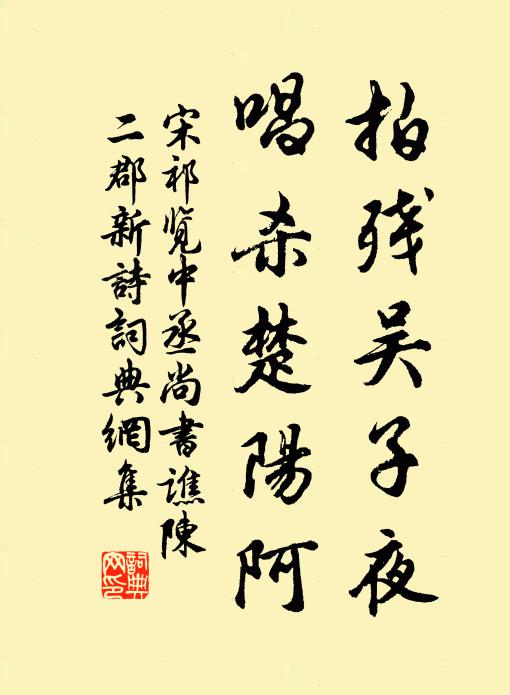 拍残吴子夜
唱杀楚陽阿
宋祁览中丞尚書譙陳
二郡新詩詞典網集
詞典
网印